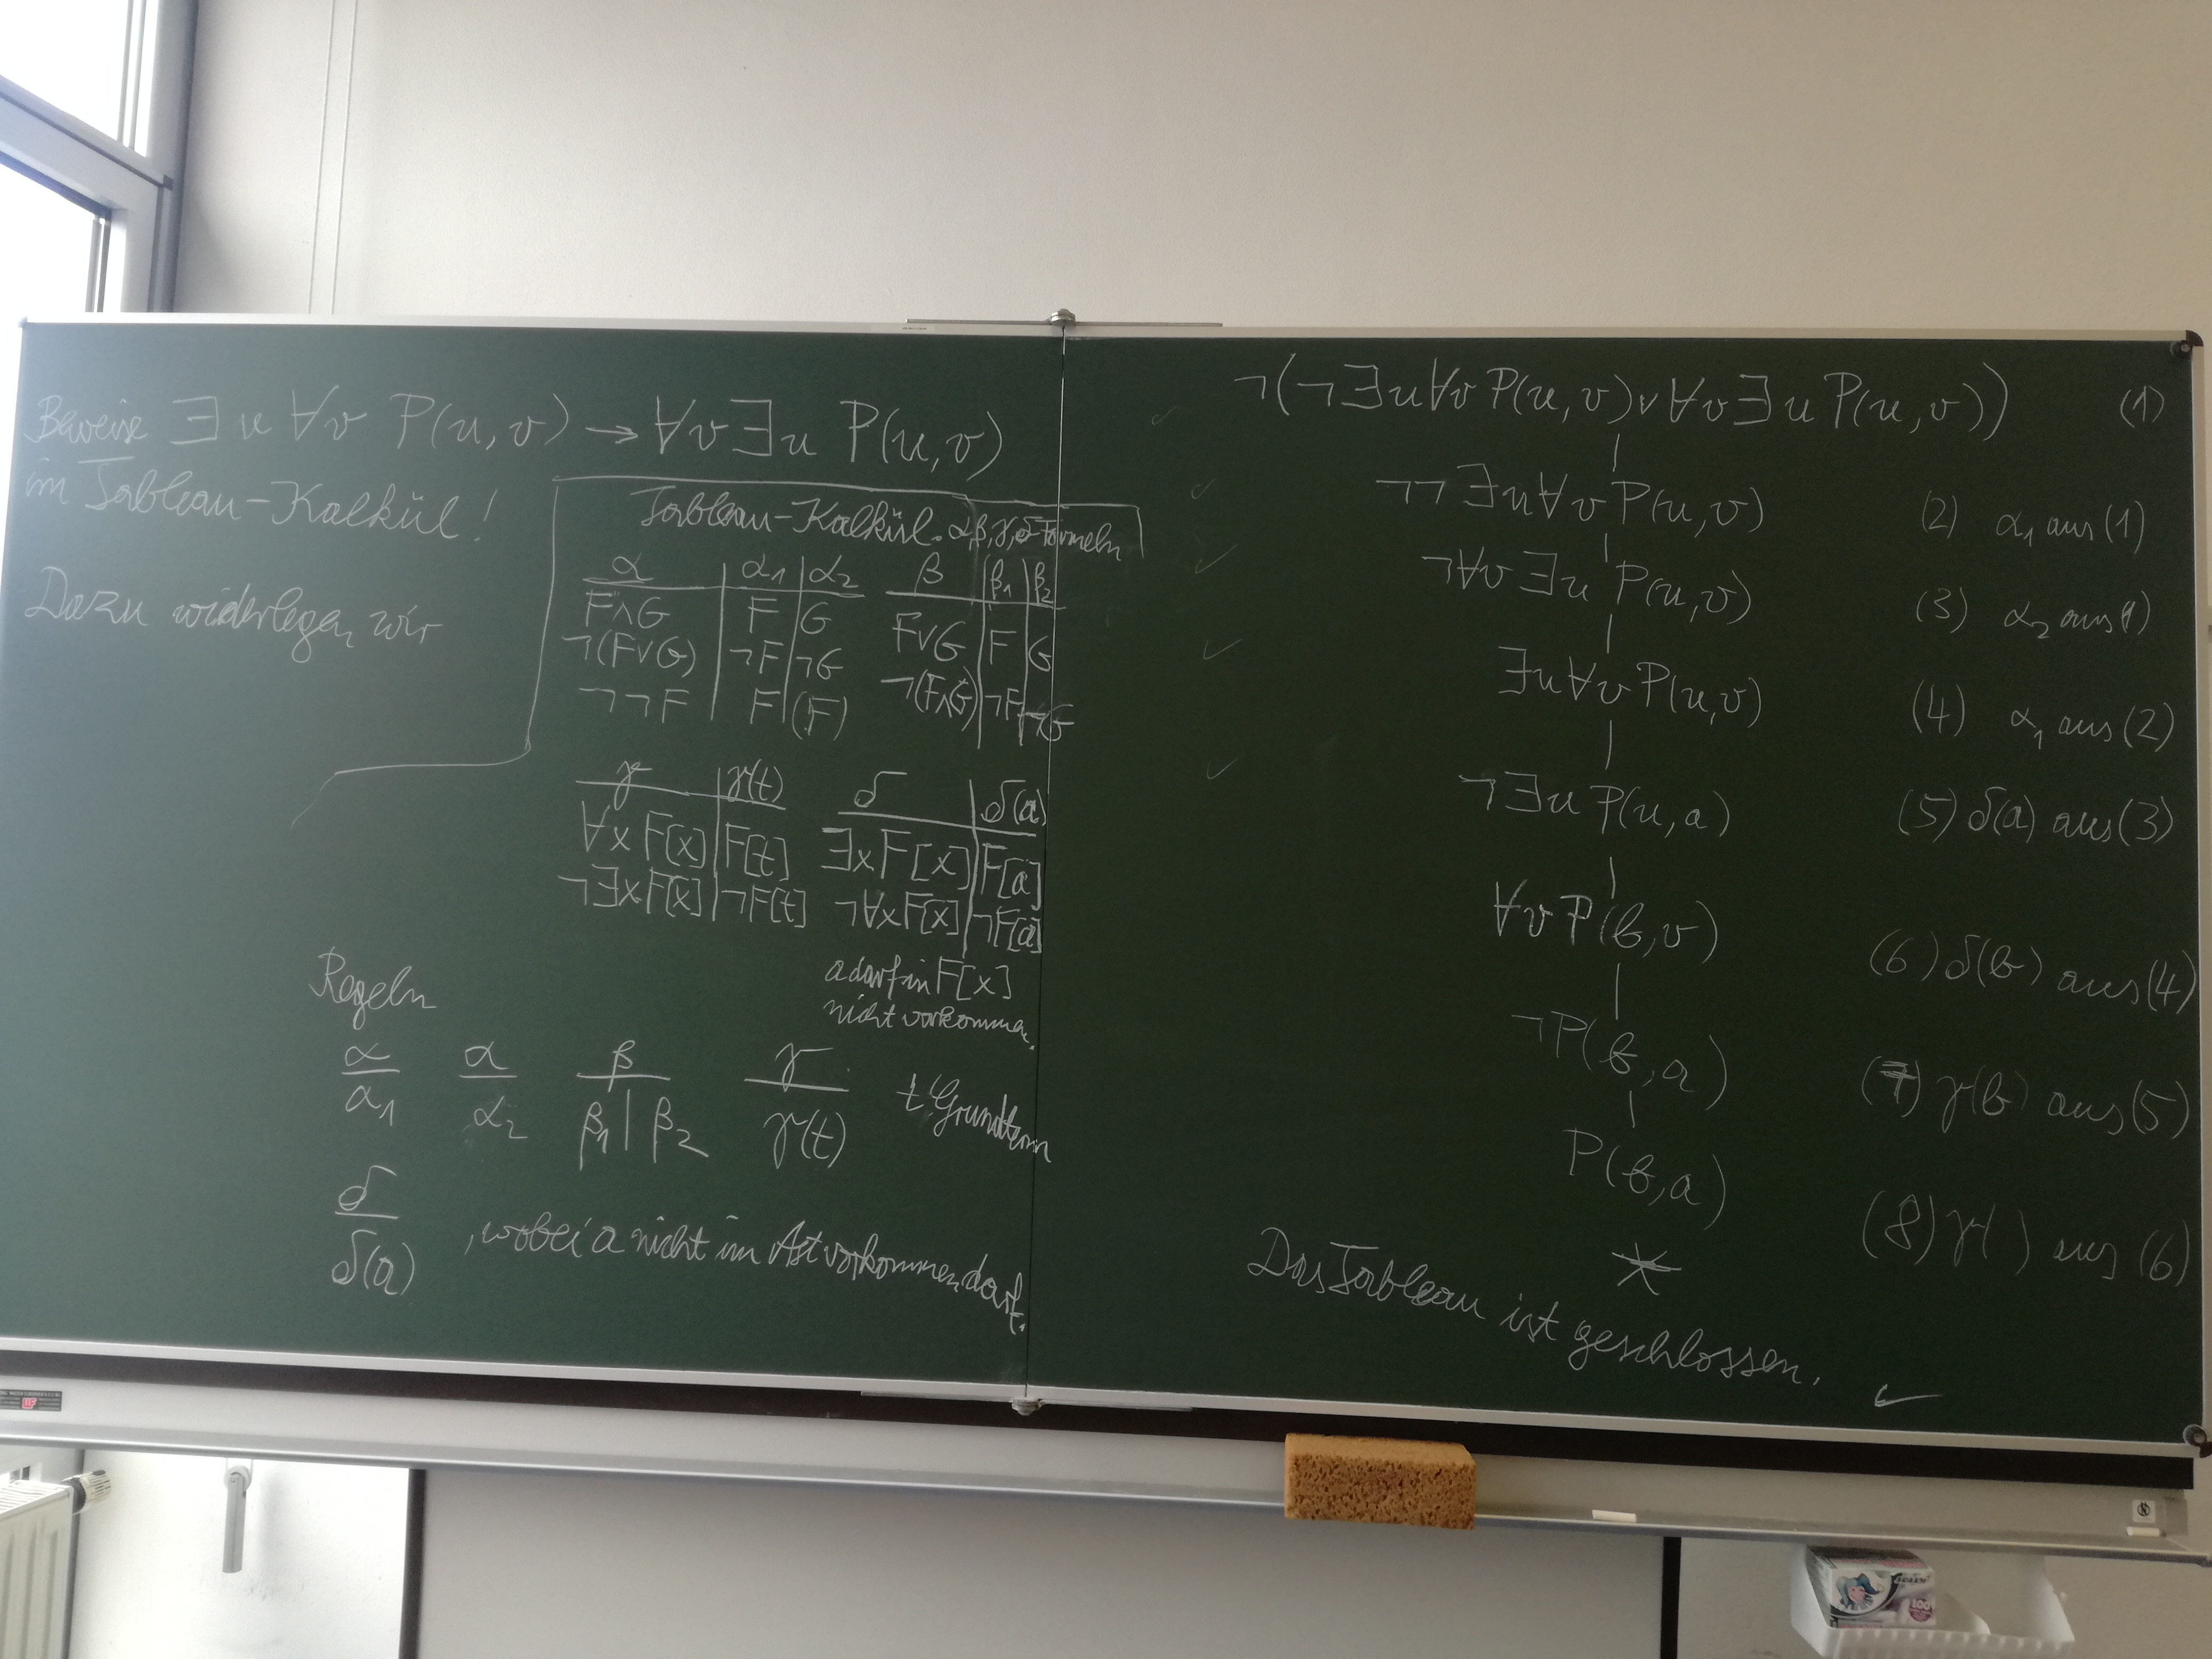 Beweise ∃u ∀v P(u,v) → ∀v ∃u P(u,v)
im Tableau-Kalkül!
Dazu widerlegen wir
Tableau-Kalkül. α,β,γ,δ-Formeln
α | α₁ | α₂
F∧G | F | G
¬(F∨G) | ¬F | ¬G
¬¬F | F | (F)
β | β₁ | β₂
F∨G | F | G
¬(F∧G) | ¬F | ¬G
γ | γ(t)
∀x F[x] | F[t]
¬∃x F[x] | ¬F[t]
δ | δ(a)
∃x F[x] | F[a]
¬∀x F[x] | ¬F[a]
a darf in F[x]
nicht vorkommen.
Regeln
α/α₁ α/α₂ β/β₁|β₂ γ/γ(t) t Grundterm
δ/δ(a) , wobei a nicht im Ast vorkommen darf.
¬(¬∃u∀v P(u,v) ∨ ∀v∃u P(u,v)) (1)
¬¬∃u∀v P(u,v) (2) α₁ aus (1)
¬∀v ∃u P(u,v) (3) α₂ aus (1)
∃u∀v P(u,v) (4) α₁ aus (2)
¬∃u P(u,a) (5) δ(a) aus (3)
∀v P(b,v) (6) δ(b) aus (4)
¬P(b,a) (7) γ(b) aus (5)
P(b,a) (8) γ( ) aus (6)
*
Das Tableau ist geschlossen. ✓